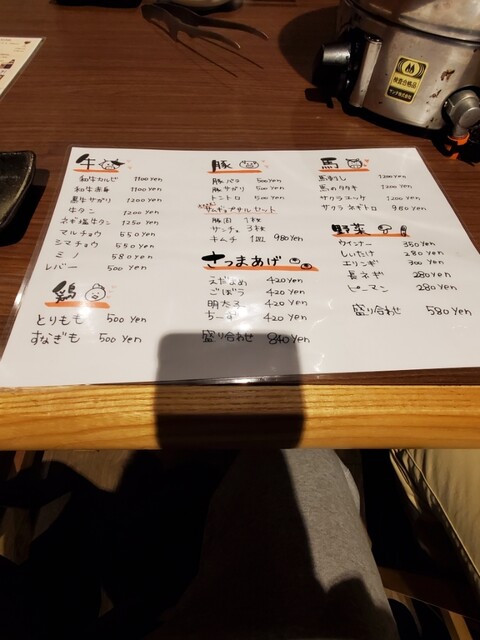 牛
和牛カルビ 1100 yen
和牛赤身 1100 yen
黒牛サガリ 1200 yen
牛タン 1200 yen
ネギ塩牛タン 1250 yen
マルチョウ 550 yen
シマチョウ 550 yen
ミノ 580 yen
レバー 500 yen
鶏
とりもも 500 yen
すなぎも 500 yen
豚
豚バラ 500 yen
豚サガリ 500 yen
トントロ 500 yen
サムギョプサル セット
豚肉 1枚
サンチュ 3枚
キムチ 1皿 980 yen
さつまあげ
えだまめ 420 yen
ごぼう 420 yen
明太子 420 yen
ちーず 420 yen
盛り合わせ 840 yen
馬
馬刺し 1200 yen
馬のタタキ 1200 yen
サクラユッケ 1200 yen
サクラネギトロ 980 yen
野菜
ウインナー 350 yen
しいたけ 280 yen
エリンギ 300 yen
長ネギ 280 yen
ピーマン 280 yen
盛り合わせ 580 yen
検査合格品